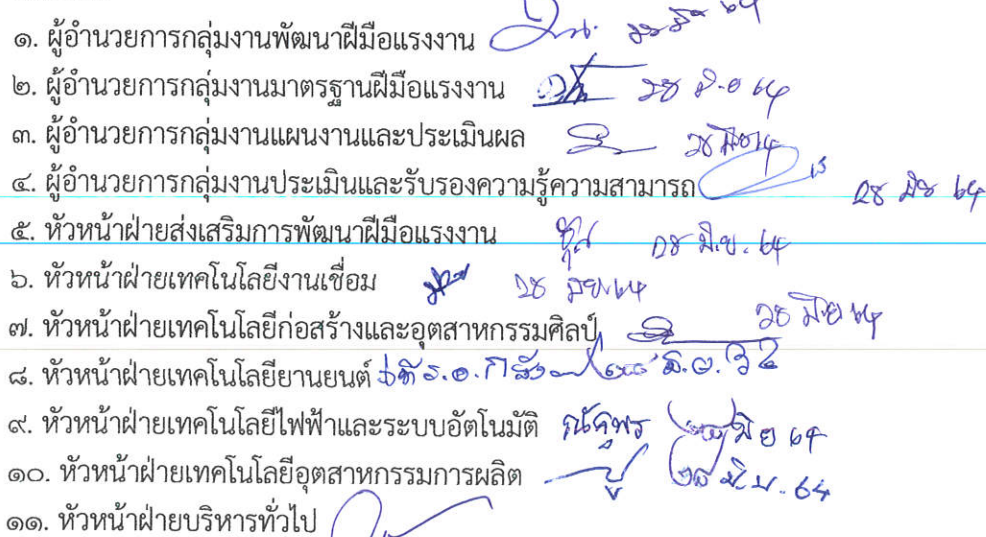 ๑. ผู้อำนวยการกลุ่มงานพัฒนาฝีมือแรงงาน
๒. ผู้อำนวยการกลุ่มงานมาตรฐานฝีมือแรงงาน 28 มิ.ย 64
๓. ผู้อำนวยการกลุ่มงานแผนงานและประเมินผล 28 มิย 64
๔. ผู้อำนวยการกลุ่มงานประเมินและรับรองความรู้ความสามารถ 28 มิย 64
๕. หัวหน้าฝ่ายส่งเสริมการพัฒนาฝีมือแรงงาน 28 มิ.ย. 64
๖. หัวหน้าฝ่ายเทคโนโลยีงานเชื่อม 28 มิย. 64
๗. หัวหน้าฝ่ายเทคโนโลยีก่อสร้างและอุตสาหกรรมศิลป์ 28 มิย 64
๘. หัวหน้าฝ่ายเทคโนโลยียานยนต์
๙. หัวหน้าฝ่ายเทคโนโลยีไฟฟ้าและระบบอัตโนมัติ ๒๘ มิย 64
๑๐. หัวหน้าฝ่ายเทคโนโลยีอุตสาหกรรมการผลิต ๒๘ มิ.ย. 64
๑๑. หัวหน้าฝ่ายบริหารทั่วไป